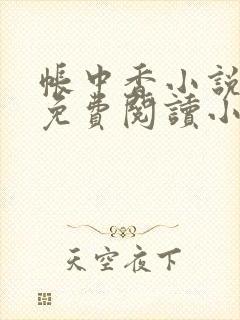 帳中香小說
免費閱讀小
天空夜下